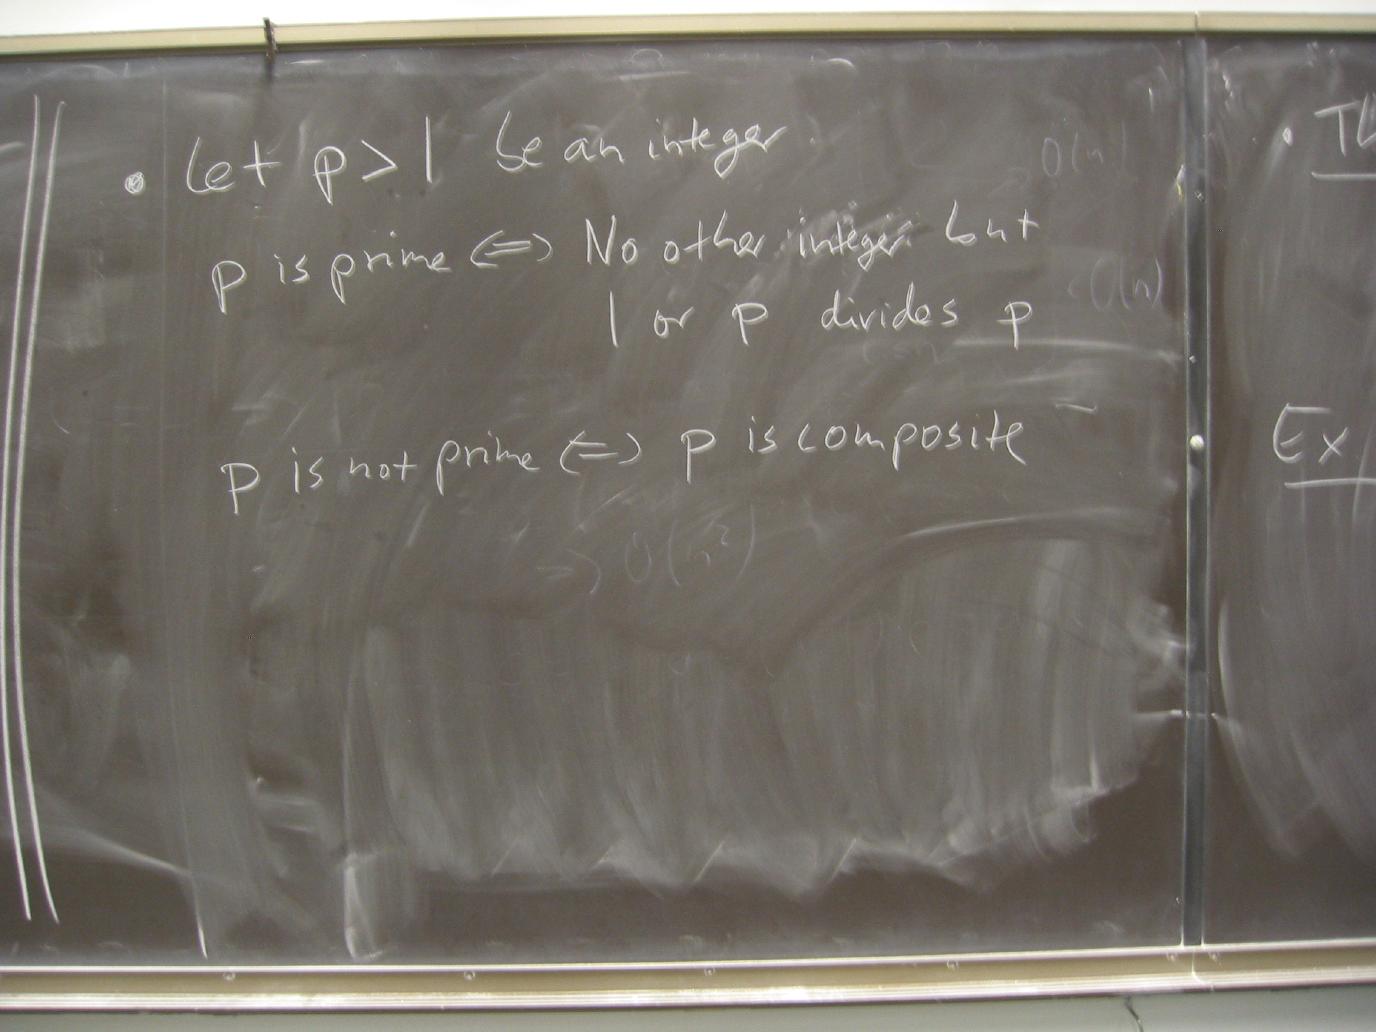 • Let p > 1 be an integer.
p is prime <=> No other integer but
1 or p divides p
p is not prime <=> p is composite
O(n)
O(n)
=> O(n²)
• Th
Ex